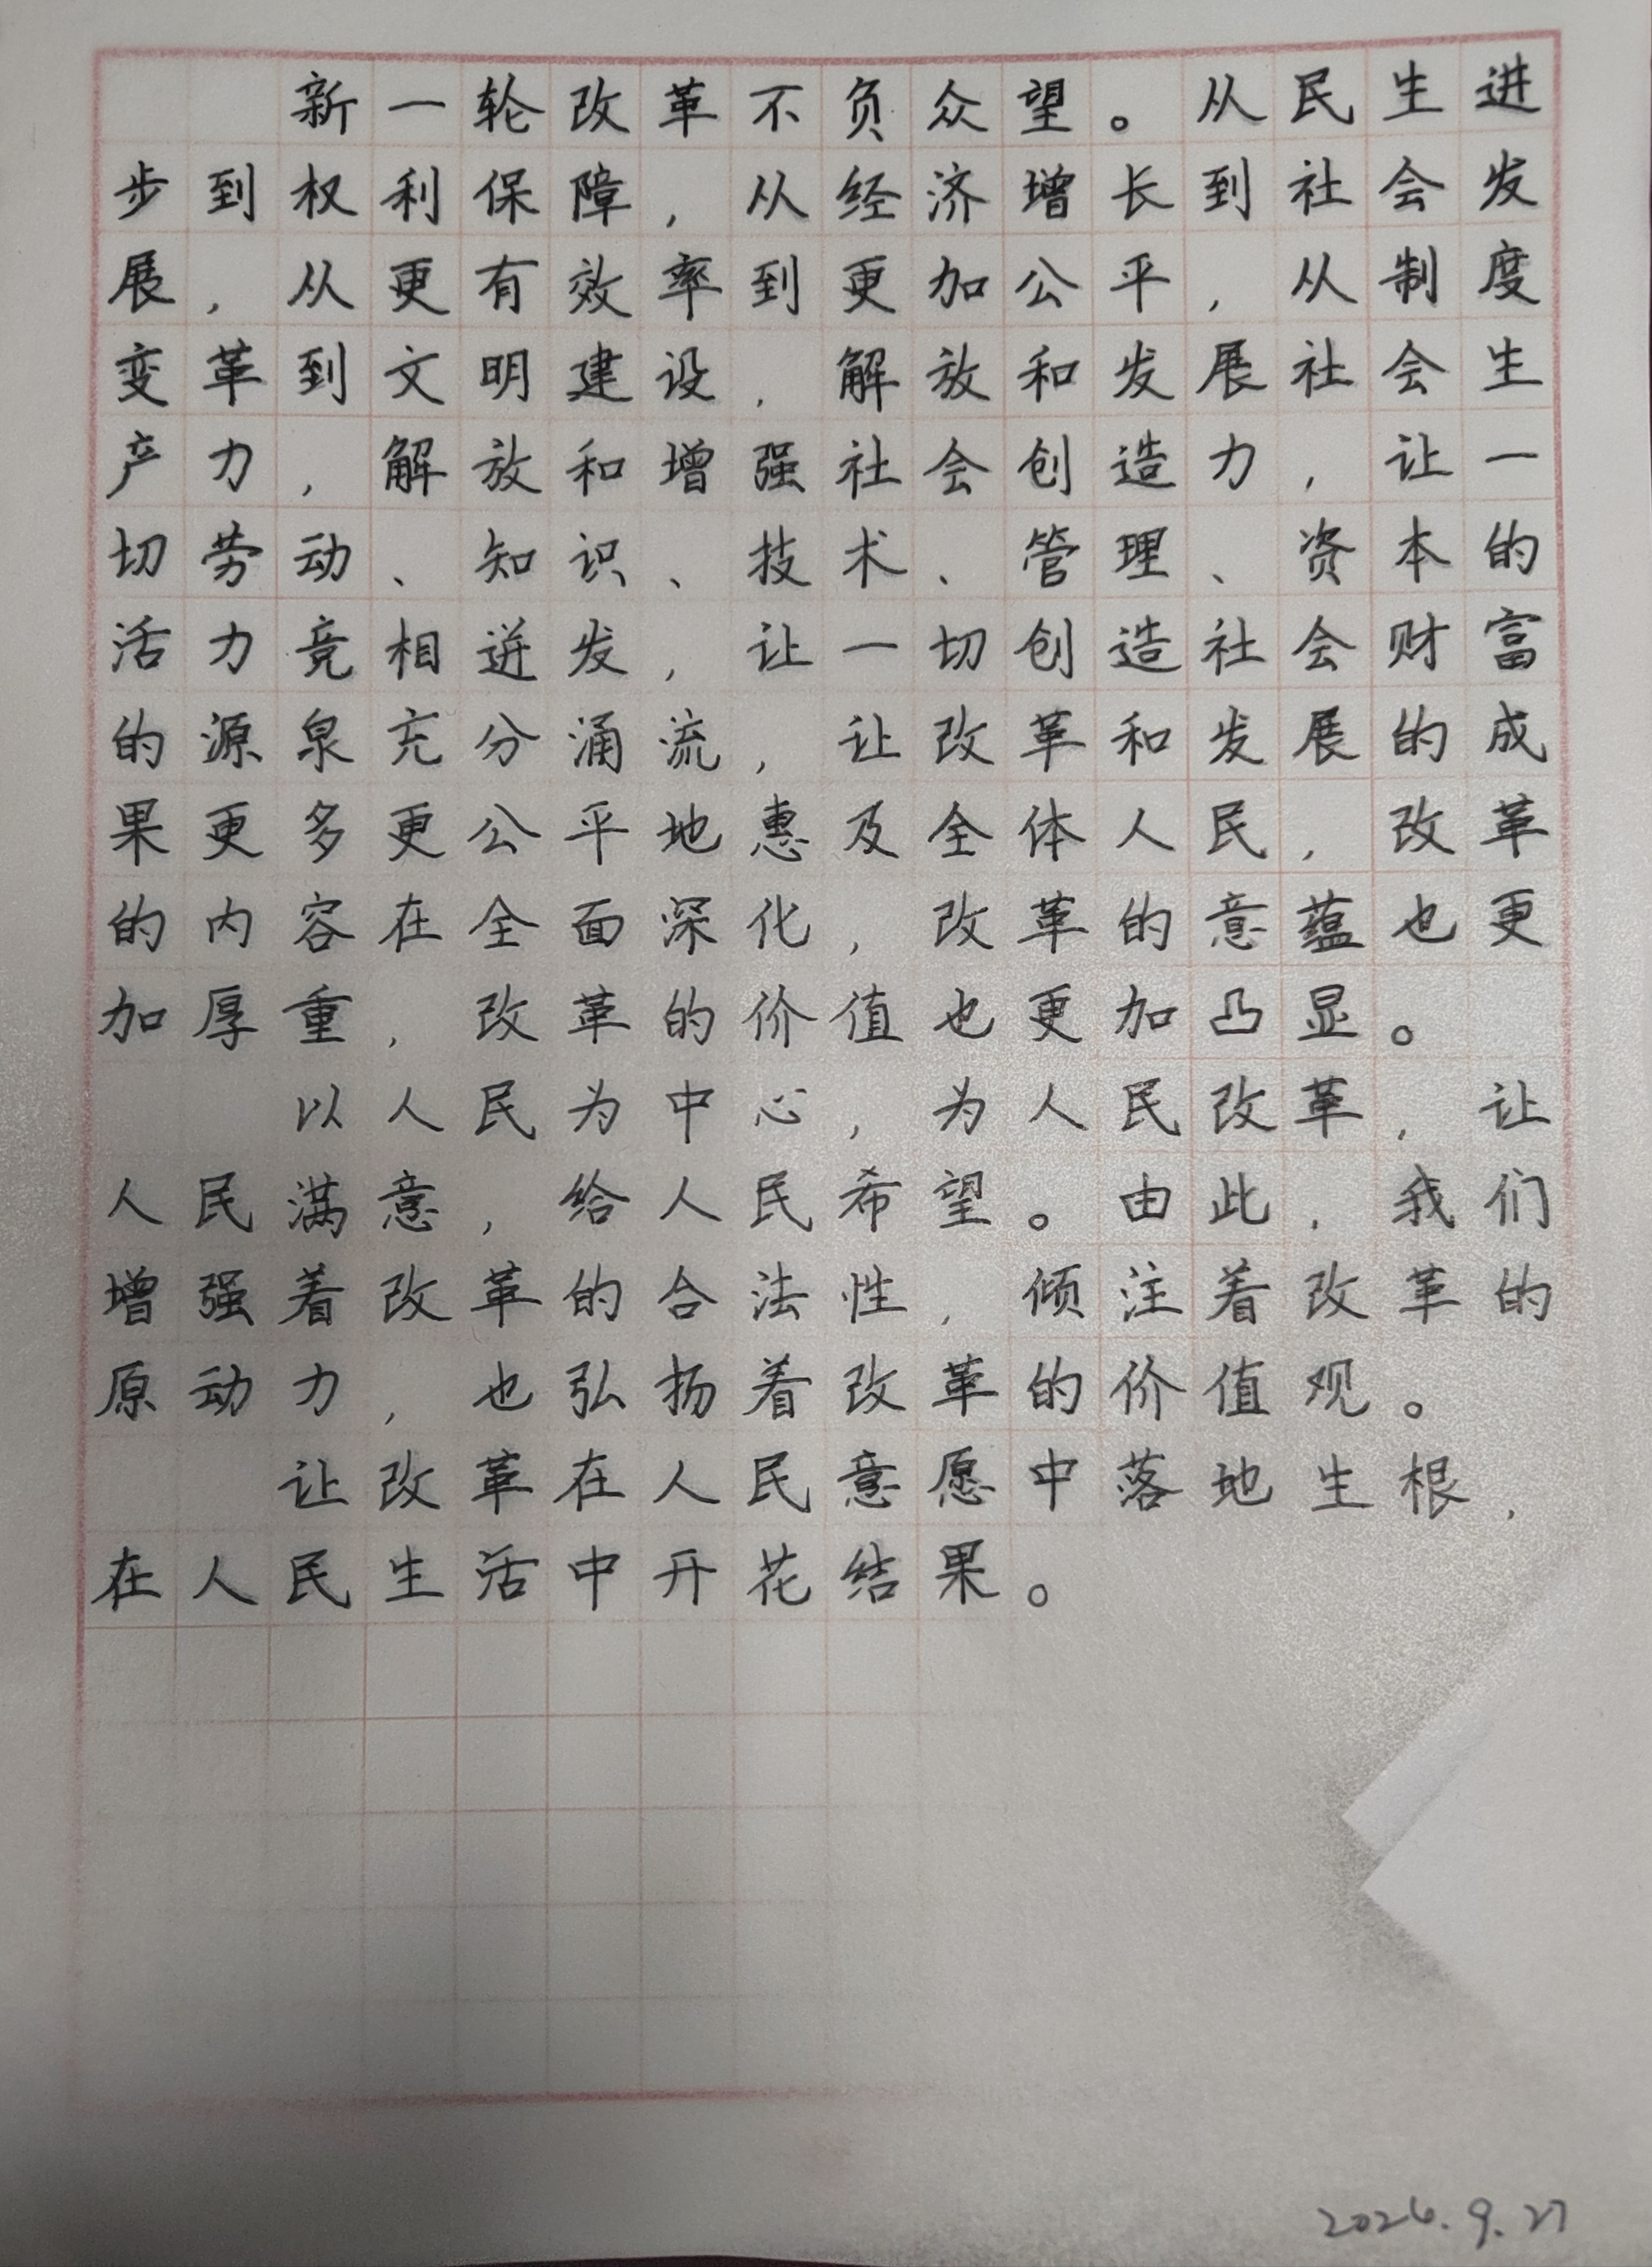 新一轮改革不负众望。从民生进
步到权利保障，从经济增长到社会发
展，从更有效率到更加公平，从制度
变革到文明建设，解放和发展社会生
产力，解放和增强社会创造力，让一
切劳动、知识、技术、管理、资本的
活力竞相迸发，让一切创造社会财富
的源泉充分涌流，让改革和发展的成
果更多更公平地惠及全体人民，改革
的内容在全面深化，改革的意蕴也更
加厚重，改革的价值也更加凸显。
以人民为中心，为人民改革，让
人民满意，给人民希望。由此，我们
增强着改革的合法性，倾注着改革的
原动力，也弘扬着改革的价值观。
让改革在人民意愿中落地生根，
在人民生活中开花结果。